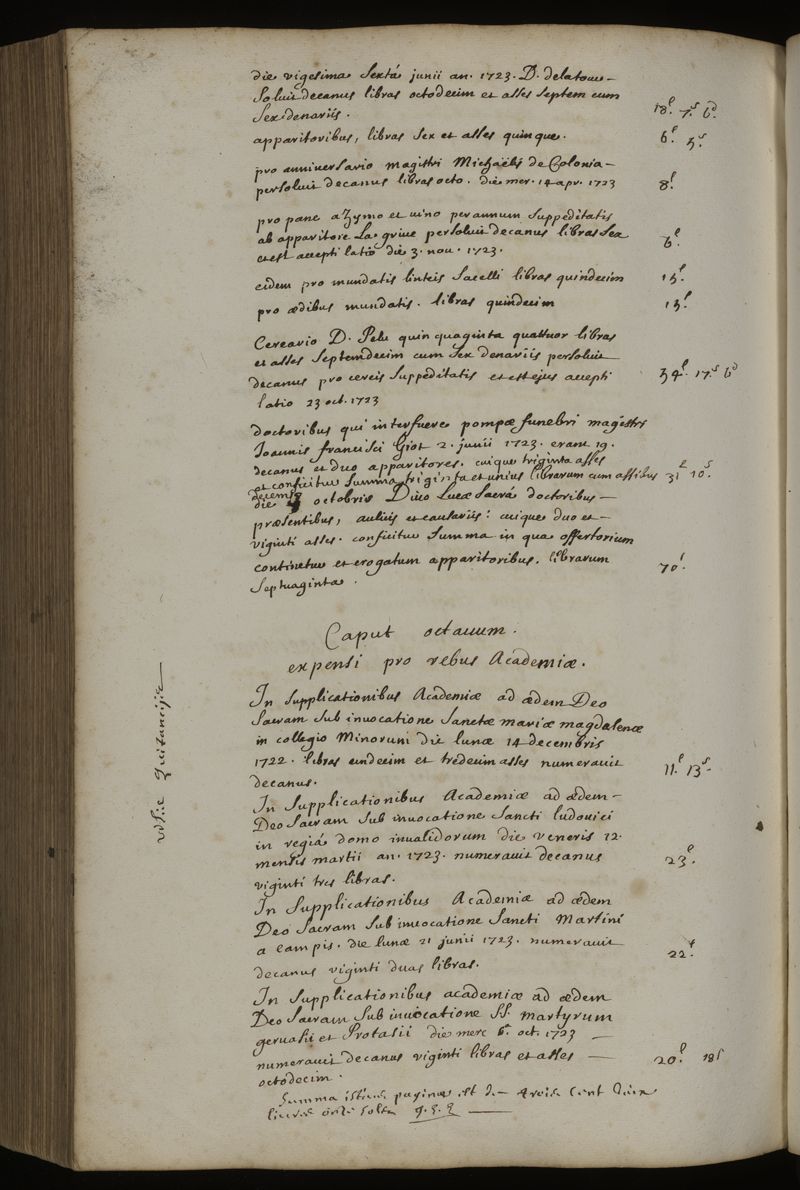 die vigesima sextâ junii an. 1723. D. delatour –
soluit decanus libras octodecim et asses septem cum
sex denariis. 18ˡ 7ˢ 6ᵈ.
apparitoribus, libras sex et asses quinque. 6ˡ 5ˢ.
pro anniversario magistri Michaëlis de Colonia –
persoluit decanus libras octo. die mer. 14 apr. 1723 8ˡ.
pro pane azymo et vino per annum suppeditatis
ab apparitore La grive persoluit decanus libras sex
et est accepti latio die 3. nov. 1723. 6ˡ.
eidem pro mundatis linteis sacelli libras quindecim 15ˡ.
pro ædibus mundatis. libras quindecim 15ˡ.
Cereario D. Pelu quinquaginta quattuor libras
et asses septemdecim cum sex denariis persoluit
decanus pro cereis suppeditatis et est ejus accepti 54ˡ. 17ˢ. 6ᵈ
latio 23 oct. 1723
doctoribus qui interfuere pompæ funebri magistri
Joannis francisci Giot 2. junii 1723. erant 19.
decanus et duo apparitores. cuique triginta asses
et conficitur summa triginta et unius librarum cum assibus 31ˡ 10ˢ.
decem
die octobris Divo Lucæ sacrâ doctoribus –
præsentibus, aulicis et causariis: cuique duo et –
viginti asses. conficitur summa in qua offertorium
continetur et erogatum apparitoribus. librarum
septuaginta. 70ˡ.
Caput octavum.
expensi pro rebus Academiæ.
In supplicationibus Academiæ ad ædem Deo
sacram sub invocatione Sanctæ mariæ magdalenæ
in collegio Minorum die lunæ 14 decembris
1722. libras undecim et tredecim asses numeravit 11ˡ. 13ˢ.
decanus.
In supplicationibus Academiæ ad ædem –
Deo sacram sub invocatione Sancti ludovici
in regiâ domo invalidorum die veneris 12.
mensis martii an. 1723. numeravit decanus 23ˡ.
viginti tres libras.
In supplicationibus Academiæ ad ædem
Deo sacram sub invocatione Sancti Martini
a campis. die lunæ 21 junii 1723. numeravit
decanus viginti duas libras. 22ˡ.
In supplicationibus academiæ ad ædem
Deo sacram sub invocatione SS. martyrum
gervasii et Protasii die merc 6ᵃ. oct. 1723 –
numeravit decanus viginti libras et asses – 20ˡ 18ˢ
octodecim.
Summa istius paginæ est de trois cent
livres onze